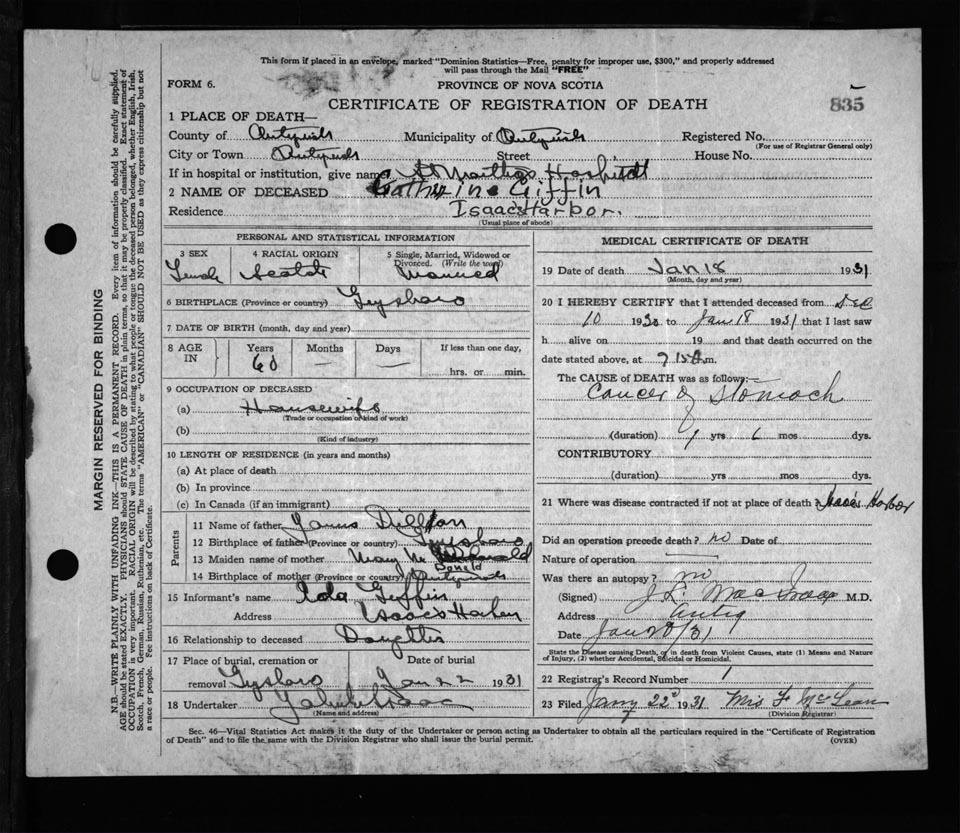 This form if placed in an envelope, marked "Dominion Statistics—Free, penalty for improper use, $300," and properly addressed
will pass through the Mail "FREE"
FORM 6.
PROVINCE OF NOVA SCOTIA
CERTIFICATE OF REGISTRATION OF DEATH
835
1 PLACE OF DEATH—
County of Antigonish Municipality of Antigonish Registered No.
(For use of Registrar General only)
City or Town Antigonish Street House No.
If in hospital or institution, give name St Marthas Hospital
2 NAME OF DECEASED Catherine Giffin
Residence Isaacs Harbor.
(Usual place of abode)
PERSONAL AND STATISTICAL INFORMATION
3 SEX 4 RACIAL ORIGIN 5 Single, Married, Widowed or
Divorced. (Write the word)
Female Scotch Married
6 BIRTHPLACE (Province or country) Guysboro
7 DATE OF BIRTH (month, day and year)
8 AGE IN Years Months Days If less than one day,
60 — — hrs. or min.
9 OCCUPATION OF DECEASED
(a) Housewife
(Trade or occupation or kind of work)
(b)
(Kind of industry)
10 LENGTH OF RESIDENCE (in years and months)
(a) At place of death
(b) In province
(c) In Canada (if an immigrant)
Parents
11 Name of father James
12 Birthplace of father (Province or country) Guysboro
13 Maiden name of mother Mary Mc Donald
14 Birthplace of mother (Province or country) Antigonish
15 Informant's name Giffin
Address Isaacs Harbor
16 Relationship to deceased Daughter
17 Place of burial, cremation or Date of burial
removal Guysboro Jan 22 1931
18 Undertaker
(Name and address)
MEDICAL CERTIFICATE OF DEATH
19 Date of death Jan 18 1931
(Month, day and year)
20 I HEREBY CERTIFY that I attended deceased from Dec
10 1930 to Jan 18 1931 that I last saw
h alive on 19 and that death occurred on the
date stated above, at 7 15 A m.
The CAUSE OF DEATH was as follows:—
Cancer of Stomach
(duration) 1 yrs 6 mos dys.
CONTRIBUTORY
(duration) yrs mos dys.
21 Where was disease contracted if not at place of death? Isaac's Harbor
Did an operation precede death? no Date of
Nature of operation
Was there an autopsy? no
(Signed) M.D.
Address Antig
Date Jan 20/31
State the Disease causing Death, or in death from Violent Causes, state (1) Means and Nature
of Injury, (2) whether Accidental, Suicidal or Homicidal.
22 Registrar's Record Number 1
23 Filed Jany 22d 1931 Mrs F McLean
(Division Registrar)
Sec. 46—Vital Statistics Act makes it the duty of the Undertaker or person acting as Undertaker to obtain all the particulars required in the "Certificate of Registration
of Death" and to file the same with the Division Registrar who shall issue the burial permit.
(OVER)
MARGIN RESERVED FOR BINDING
N.B.—WRITE PLAINLY WITH UNFADING INK—THIS IS A PERMANENT RECORD. Every item of information should be carefully supplied.
AGE should be stated EXACTLY. PHYSICIANS should STATE CAUSE OF DEATH in plain terms, so that it may be properly classified. Exact statement of
OCCUPATION is very important. RACIAL ORIGIN will be described by stating to what people or tongue the deceased person belonged, whether English, Irish,
Scotch, French, German, Russian, Ruthenian, etc. The terms "AMERICAN" or "CANADIAN" SHOULD NOT BE USED as they express citizenship but not
a race or people. Fee instructions on back of Certificate.